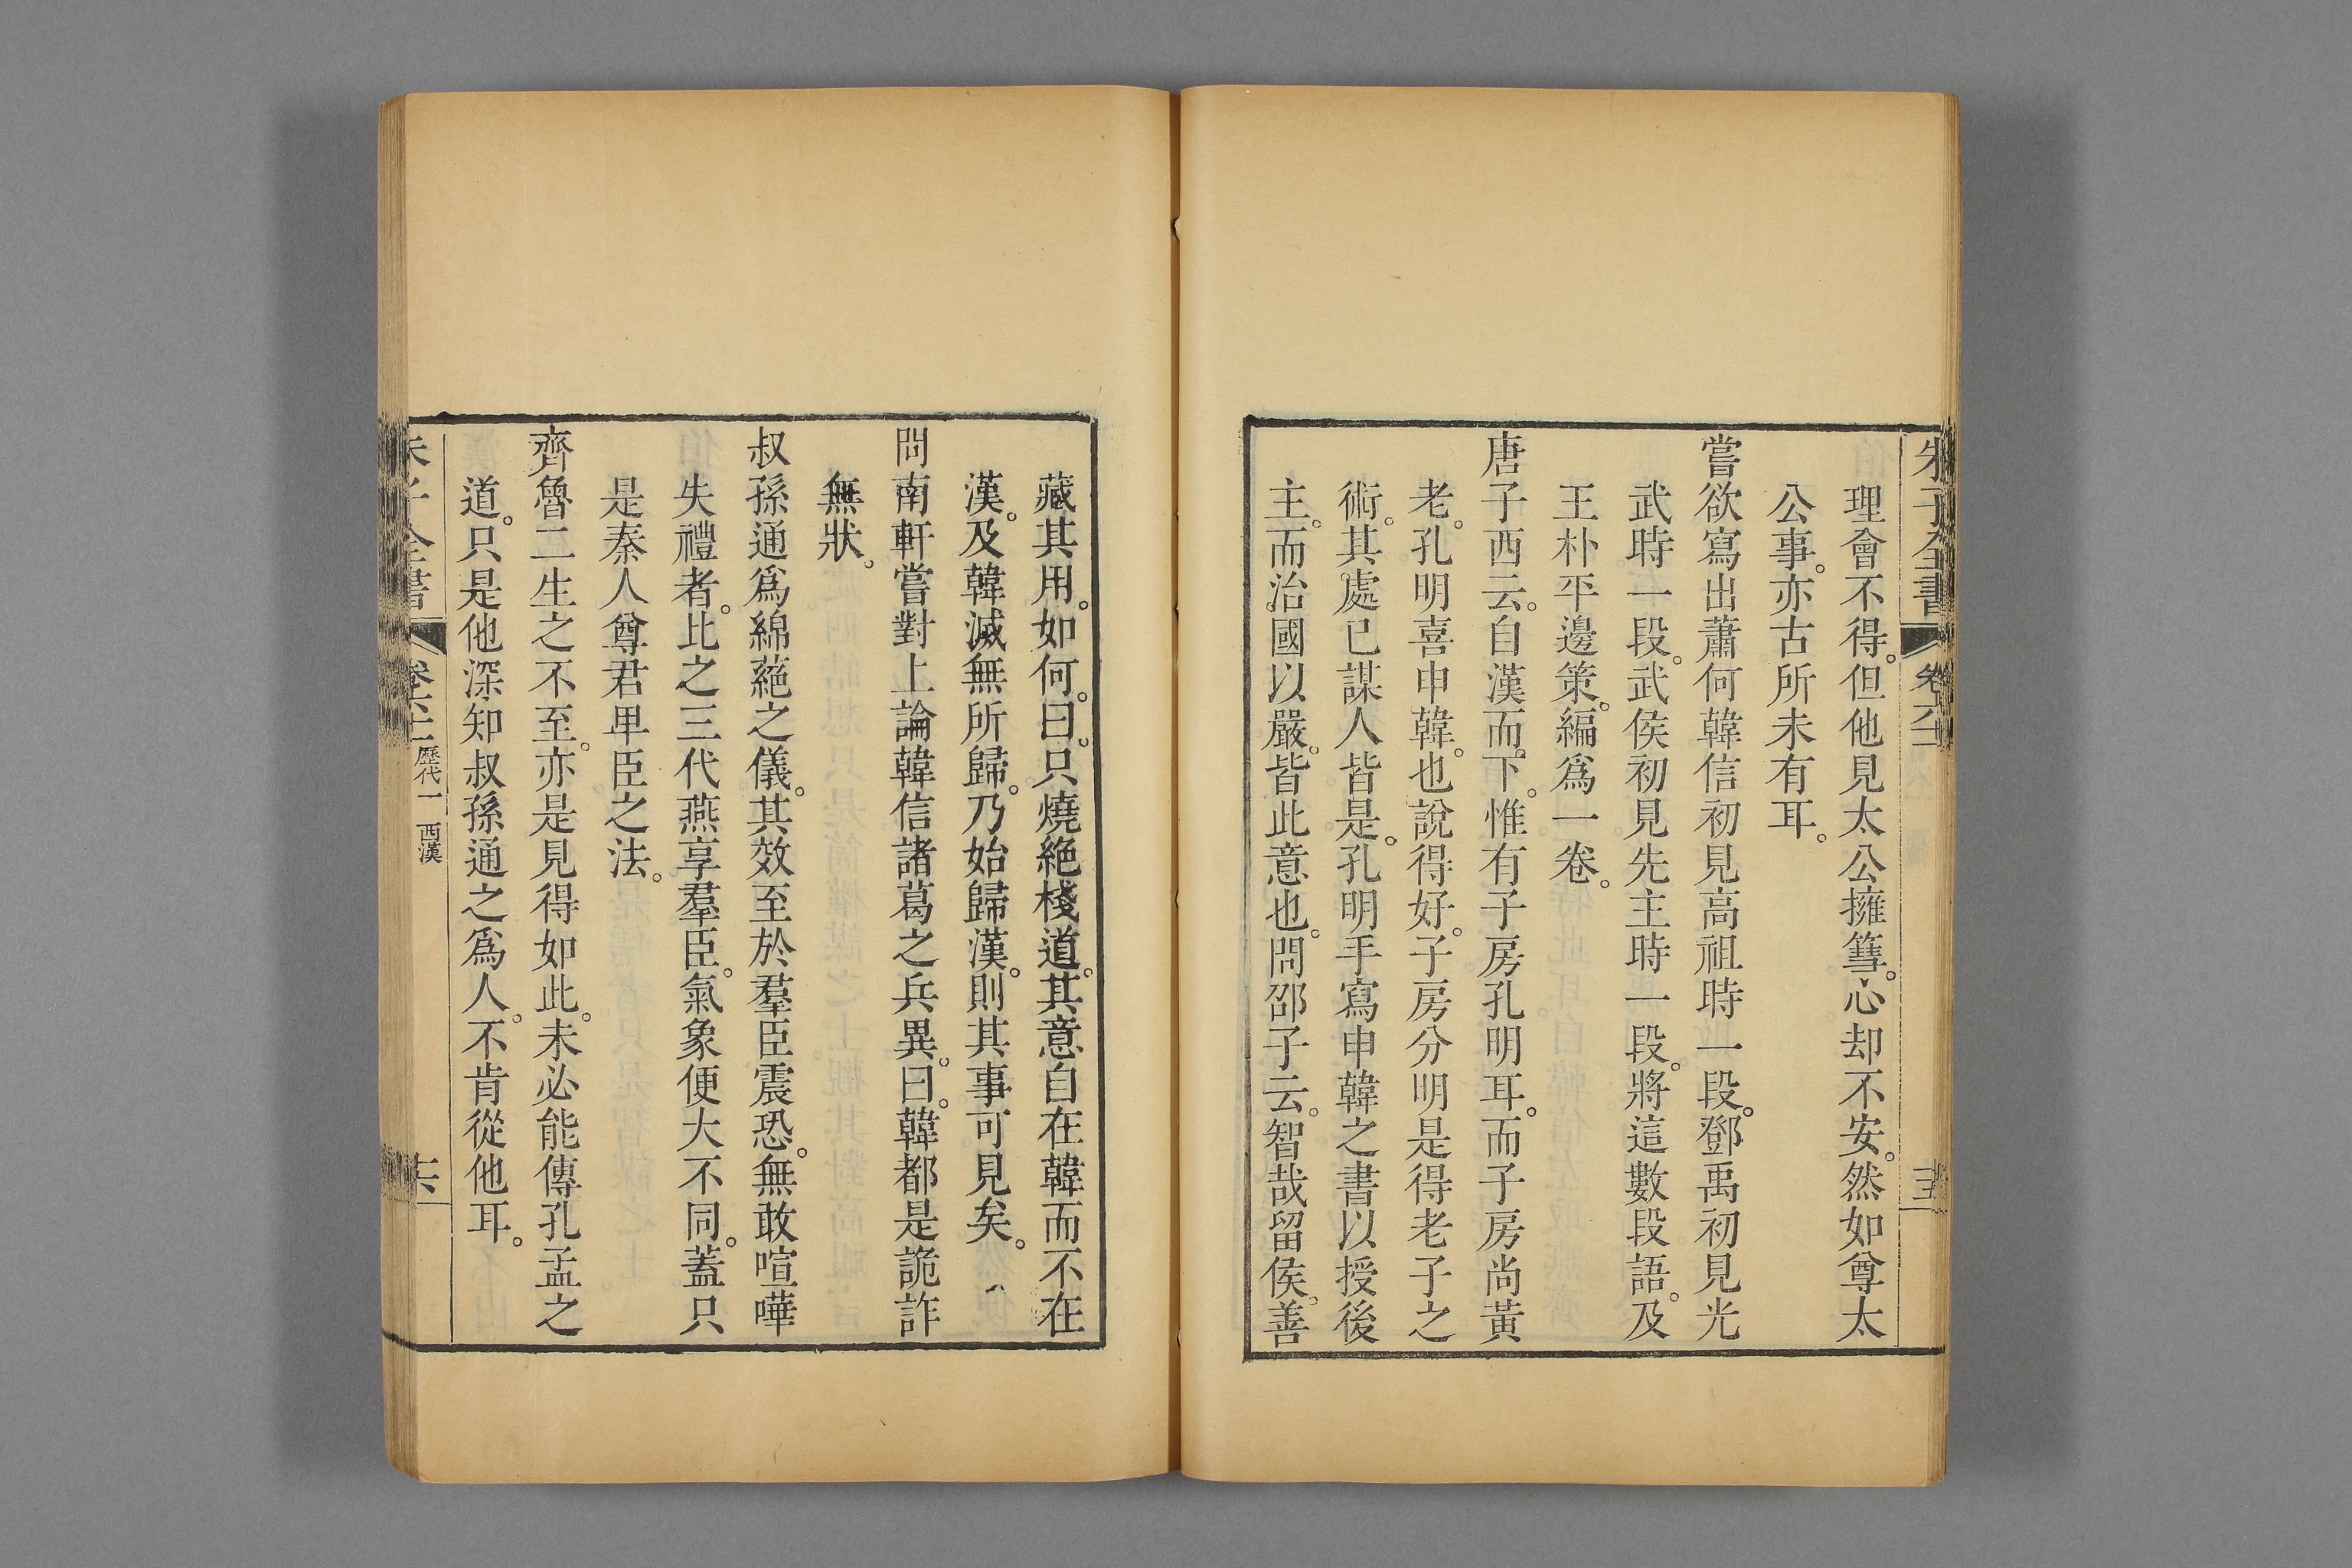 朱子全書 卷六十一
理會不得。但他見太公擁篲。心却不安。然如尊太
公事。亦古所未有耳。
嘗欲寫出蕭何韓信初見高祖時一段。鄧禹初見光
武時一段。武侯初見先主時一段。將這數段語。及
王朴平邊策。編爲一卷。
唐子西云。自漢而下。惟有子房孔明耳。而子房尚黃
老。孔明喜申韓。也說得好。子房分明是得老子之
術。其處已謀人皆是。孔明手寫申韓之書以授後
主。而治國以嚴。皆此意也。問邵子云。智哉留侯。善
藏其用。如何。曰。只燒絶棧道。其意自在韓而不在
漢。及韓滅無所歸。乃始歸漢。則其事可見矣。
問南軒嘗對上論韓信諸葛之兵異。曰。韓都是詭詐
無狀。
叔孫通爲綿蕝之儀。其效至於羣臣震恐。無敢喧嘩
失禮者。比之三代燕享羣臣。氣象便大不同。蓋只
是秦人尊君卑臣之法。
齊魯二生之不至。亦是見得如此。未必能傳孔孟之
道。只是他深知叔孫通之爲人。不肯從他耳。
朱子全書 卷六十一 歷代一 西漢 十六